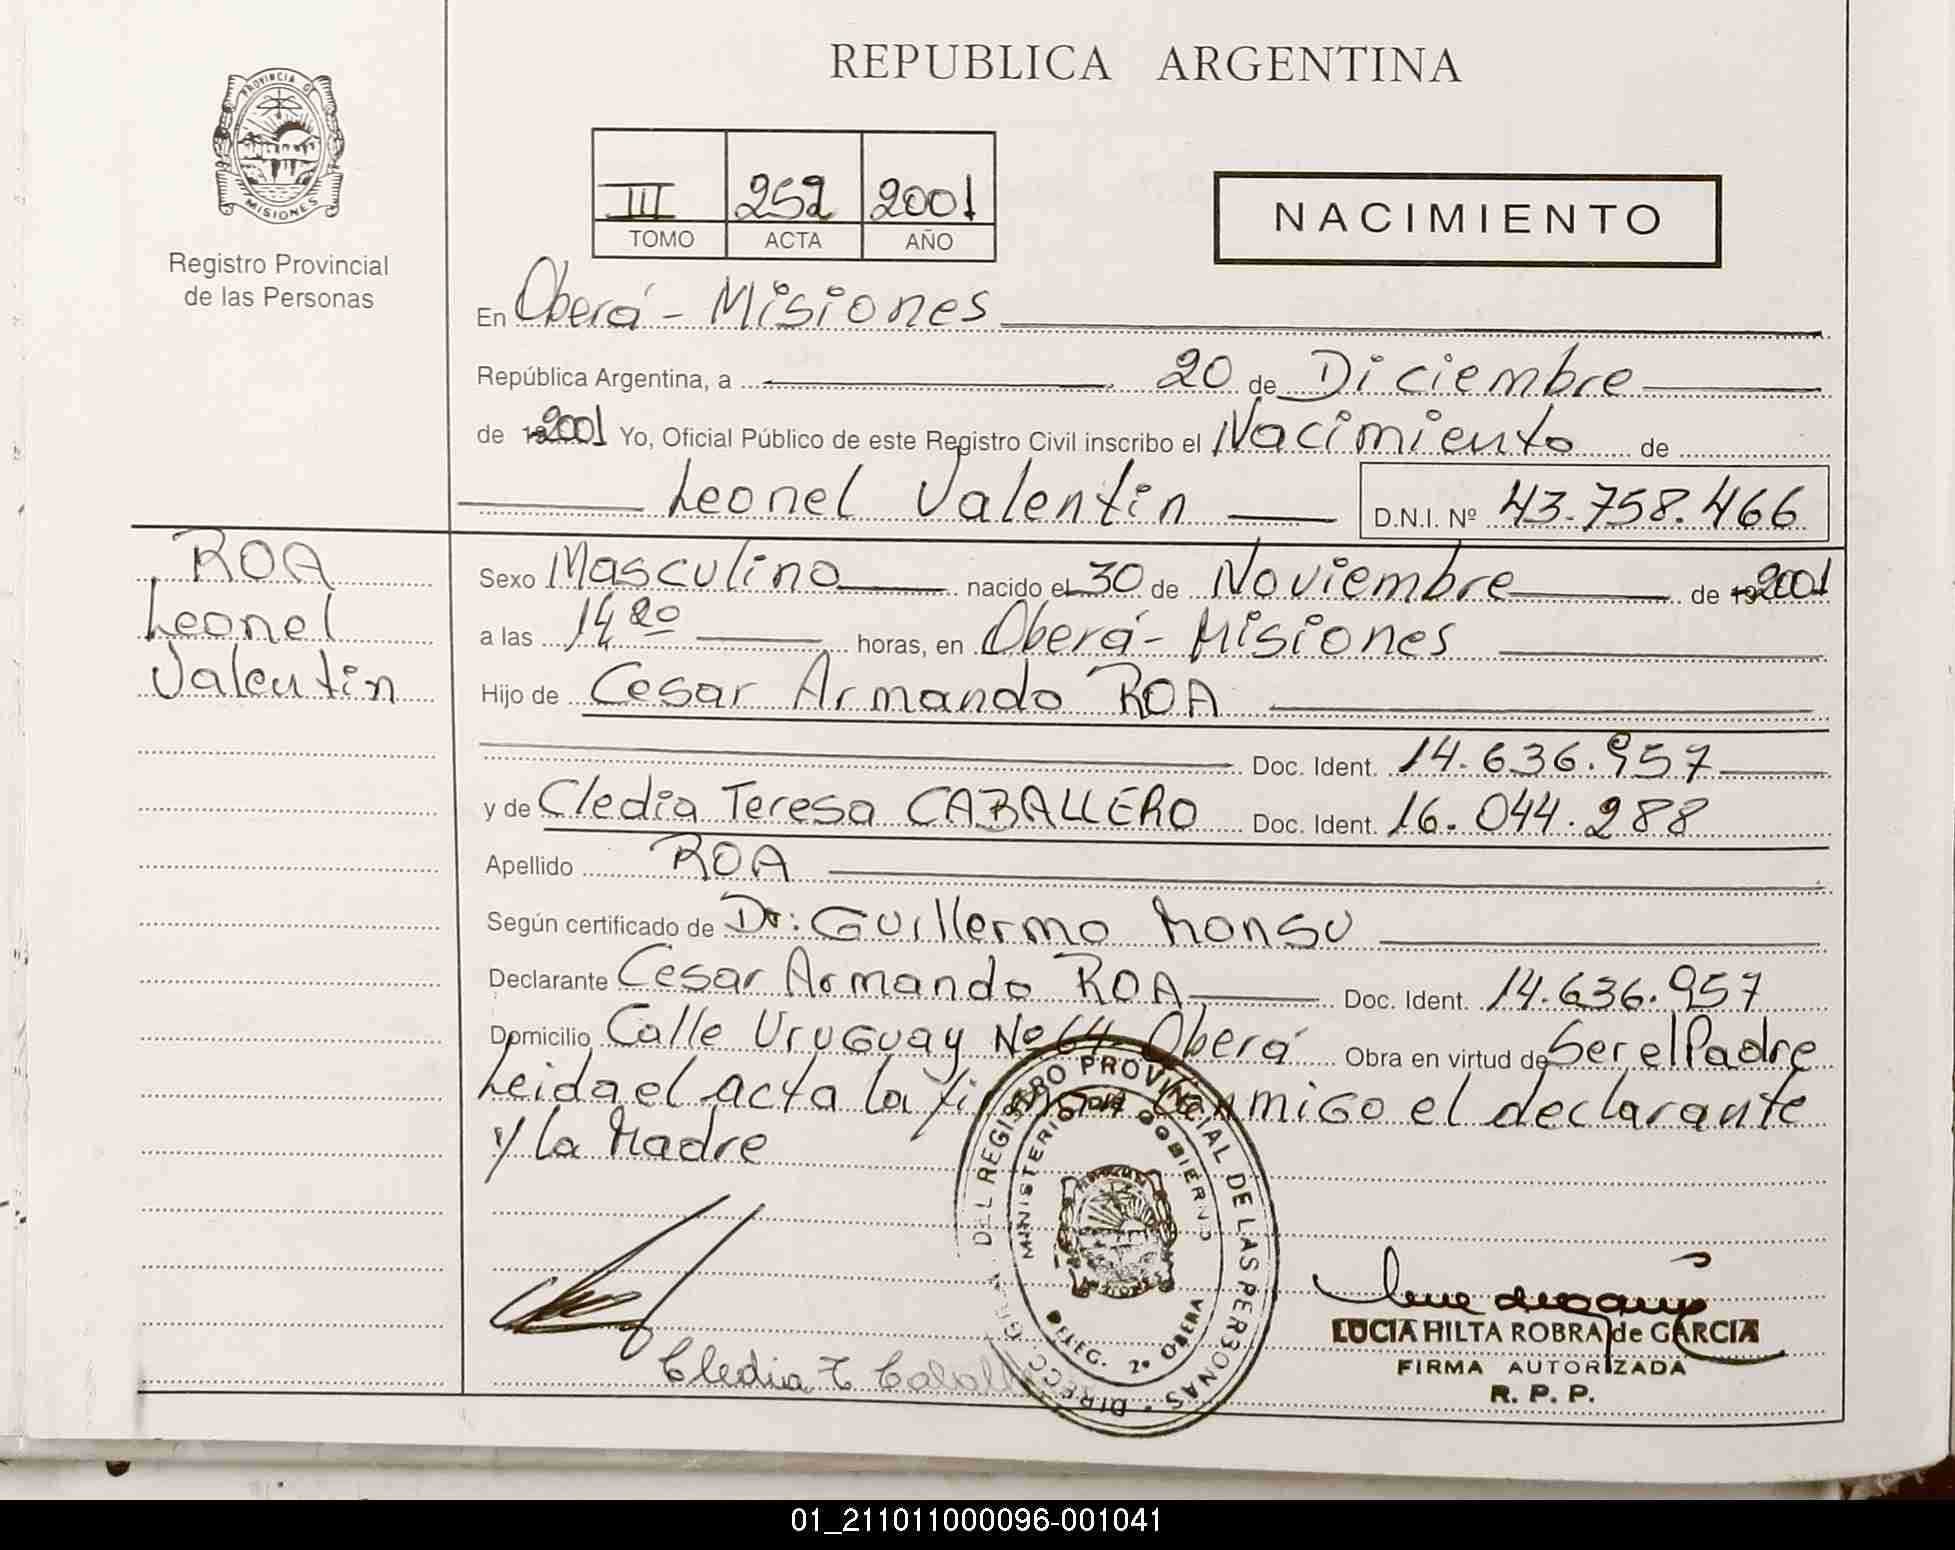 REPUBLICA ARGENTINA
PROVINCIA DE
MISIONES
Registro Provincial
de las Personas
III 252 2001
TOMO ACTA AÑO
NACIMIENTO
En Oberá - Misiones
República Argentina, a 20 de Diciembre
de 2001 Yo, Oficial Público de este Registro Civil inscribo el Nacimiento de
Leonel Valentin D.N.I. Nº 43.758.466
ROA
Leonel
Valentin
Sexo Masculino nacido el 30 de Noviembre de 2001
a las 14 20 horas, en Oberá - Misiones
Hijo de Cesar Armando ROA
Doc. Ident. 14.636.957
y de Cledia Teresa CABALLERO Doc. Ident. 16.044.288
Apellido ROA
Según certificado de Dr: Guillermo Monsu
Declarante Cesar Armando ROA Doc. Ident. 14.636.957
Domicilio Calle Uruguay Nº 64 - Oberá Obra en virtud de Ser el Padre
Leida el acta la firman conmigo el declarante
y la Madre
DIRECC. GRAL. DEL REGISTRO PROVINCIAL DE LAS PERSONAS
MINISTERIO DE GOBIERNO
DELEG. 2ª OBERA
Cledia T Caball
LUCIA HILTA ROBRA de GARCIA
FIRMA AUTORIZADA
R. P. P.
01_211011000096-001041